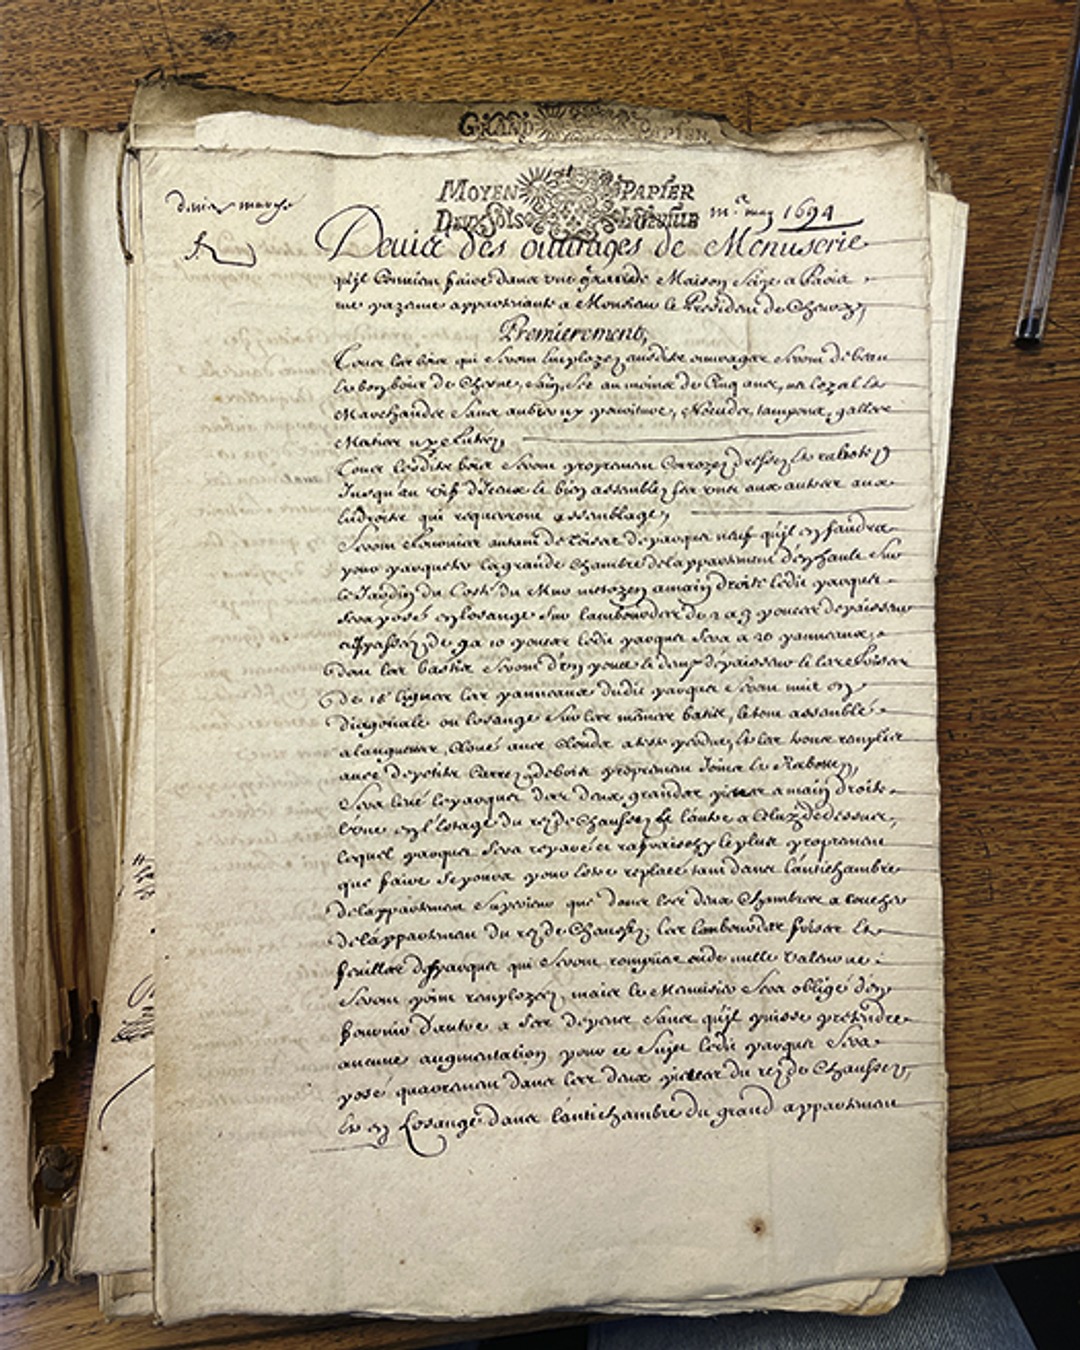 GRAND PAPIER
MOYEN PAPIER
DEUX SOLS LA FEUILLE
devis marché
may 1694
Devis des ouurages de Menuserie
qu'jl Conuient faire dans vne grande Maison Size a Paris
rue appartenante a Monsieur le President de
Premierement,
Tous les bois qui seront Employez ausdits ouurages seront de beau
et bon bois de Chesne, sain, sec au moins de Cinq ans, et loyal et
Marchandes sans aubier ny pouriture, Nœuds, tampons, galles
Mastics ny
Tous lesdits bois seront proprement Corroyez dressez et rabottez
Jusqu'au vif et bien assemblez les vnes aux autres aux
Endroits qui requerront assemblage,
Seront autant de toises de parquet neuf qu'jl en faudra
pour parqueter la grande Chambre de lappartement d'enhault sur
le Jardin du Costé du Mur mitoyen a main droite ledit parquet
sera posé en losange sur lambourdes de 2 a 3 pouces depaisseur
de 9 a 10 pouces ledit parquet sera a 20 panneaux,
dont les bastis seront d'un pouce et demy depaisseur et les
de 15 lignes les panneaux dudit parquet seront mis en
diagonale ou losange sur les mêmes batis, le tout assemblé
a languettes, Cloué auec Clouds a teste perdue, et les trous remplis
auec de petits Carrez de bois proprement Joints et Rabottez,
Sera leué le parquet des deux grandes pieces a main droite
l'vne en l'Estage du rez de Chaussée et l'autre a Celuy de dessus,
lequel parquet sera reparé et rafraischy le plus proprement
que faire se poura pour Estre replacé tant dans l'antichambre
de lappartement superieur que dans les deux Chambres a coucher
de lappartement du rez de Chaussée, les lambourdes frises et
feuilles de parquet qui seront rompues ou de nulle valeur ne
seront point remployez, mais le Menuisier sera obligé d'en
fournir d'autres a ses depens sans qu'jl puisse pretendre
aucune augmentation pour ce sujet ledit parquet sera
posé quarrement dans les deux pieces du rez de Chaussée,
et en Losange dans l'antichambre du grand appartement